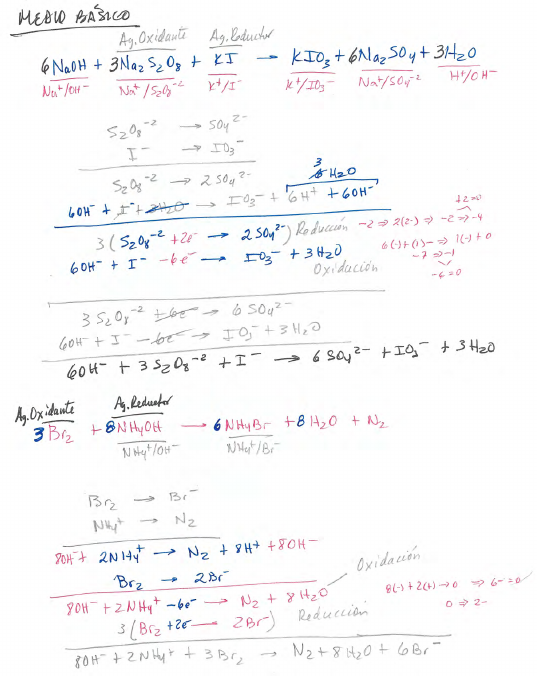 MEDIO BÁSICO
Ag. Oxidante Ag. Reductor
6NaOH + 3Na2S2O8 + KI → KIO3 + 6Na2SO4 + 3H2O
Na+/OH- Na+/S2O8-2 K+/I- K+/IO3- Na+/SO4-2 H+/OH-
S2O8-2 → SO42-
I- → IO3-
S2O8-2 → 2SO42-
3 H2O
6OH- + I- + 3H2O → IO3- + 6H+ + 6OH-
+2=0
3(S2O8-2 +2e- → 2SO42-) Reducción -2 ⇒ 2(2-) ⇒ -2 ⇒ -4
6OH- + I- -6e- → IO3- + 3H2O 6(-)+(1)- ⇒ 1(-)+0
Oxidación -7 ⇒ -1
-6=0
3S2O8-2 +6e- → 6SO42-
6OH- + I- -6e- → IO3- + 3H2O
6OH- + 3S2O8-2 + I- → 6SO42- + IO3- + 3H2O
Ag. Oxidante Ag. Reductor
3Br2 + 8NH4OH → 6NH4Br + 8H2O + N2
NH4+/OH- NH4+/Br-
Br2 → Br-
NH4+ → N2
8OH- + 2NH4+ → N2 + 8H+ + 8OH-
Br2 → 2Br-
Oxidación
8OH- + 2NH4+ -6e- → N2 + 8H2O 8(-)+2(+) → 0 ⇒ 6- = 0
3(Br2 +2e- → 2Br-) Reducción 0 ⇒ 2-
8OH- + 2NH4+ + 3Br2 → N2 + 8H2O + 6Br-